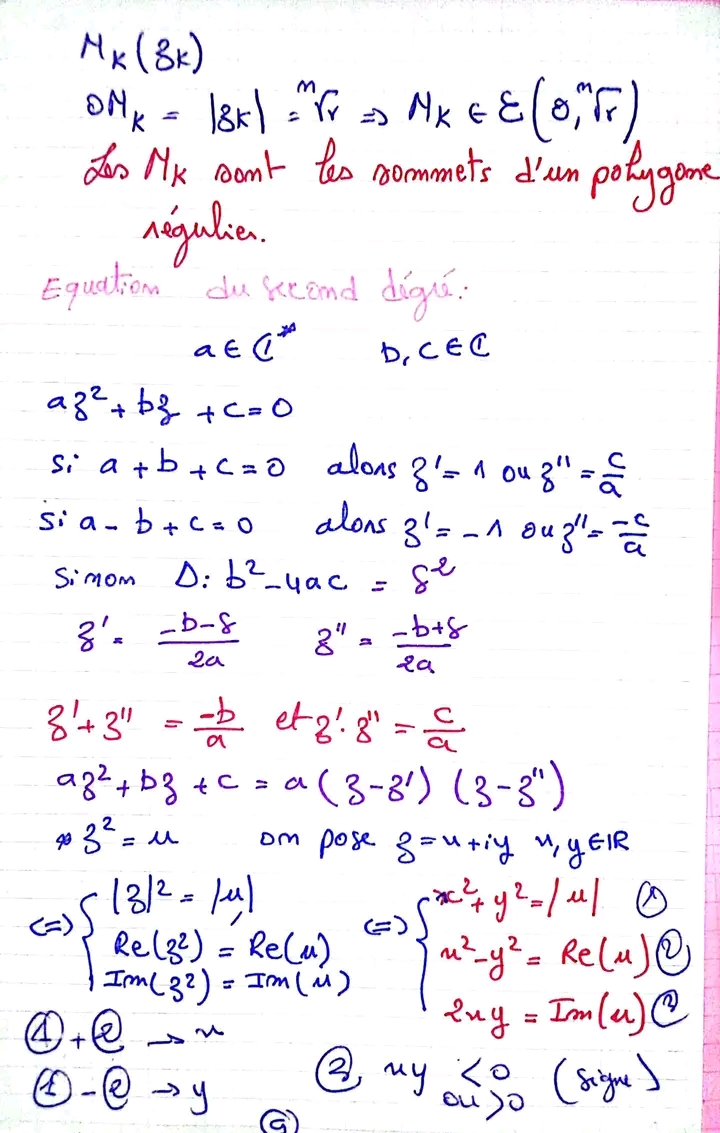 M_K (z_K)
OM_K = |z_K| = ⁿ√r ⇒ M_K ∈ ℰ(O, ⁿ√r)
Les M_K sont les sommets d'un polygone
régulier.
Equation du second dégré:
a ∈ ℂ* b, c ∈ ℂ
az² + bz + c = 0
si a + b + c = 0 alons z' = 1 ou z'' = c/a
Si a - b + c = 0 alons z' = -1 ou z'' = -c/a
Sinon Δ: b² - 4ac = δ²
z' = (-b-δ)/2a z'' = (-b+δ)/2a
z' + z'' = -b/a et z'. z'' = c/a
az² + bz + c = a (z - z') (z - z'')
* z² = u on pose z = x + iy x, y ∈ IR
⇔ { |z|² = |u| ⇔ { x² + y² = |u| ①
Re(z²) = Re(u) x² - y² = Re(u) ②
Im(z²) = Im(u) 2xy = Im(u) ③
① + ② → x
① - ② → y ③ xy < 0 ou > 0 (signe)